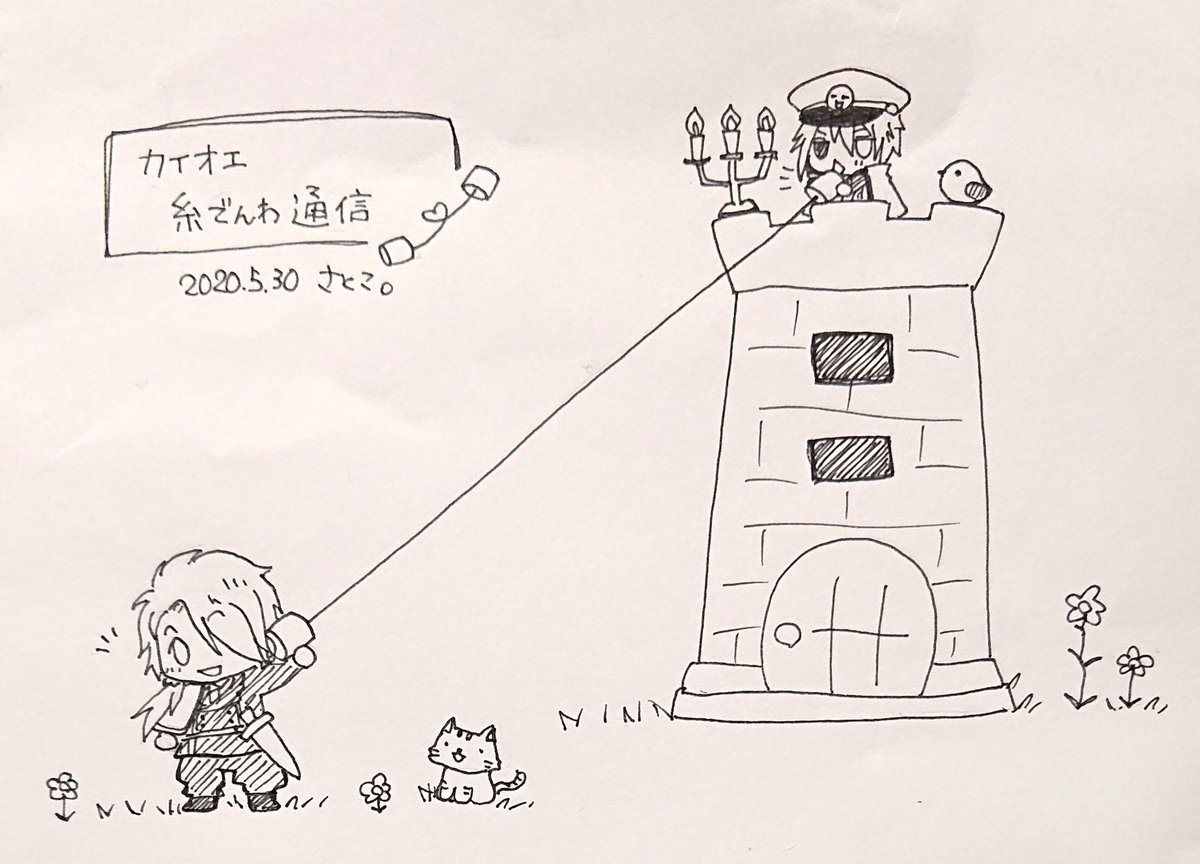 カイオエ
糸でんわ通信
2020.5.30 さとこ。